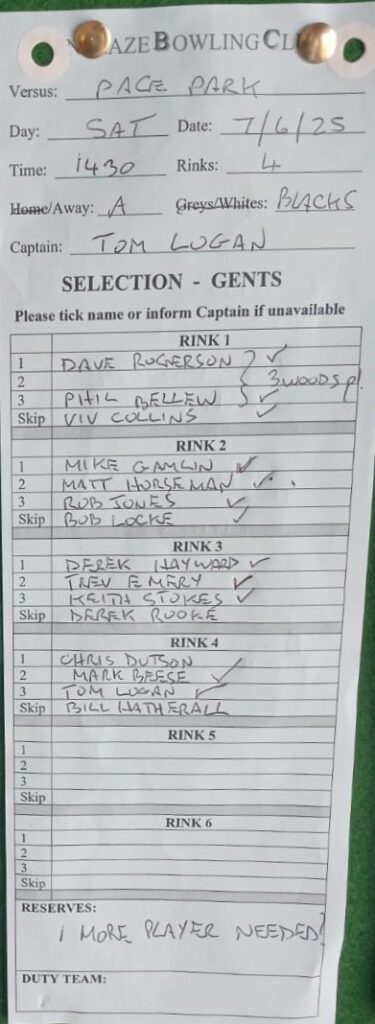 AZE BOWLING CL
Versus: PAGE PARK
Day: SAT Date: 7/6/25
Time: 1430 Rinks: 4
Home/Away: A Greys/Whites: BLACKS
Captain: TOM LOGAN
SELECTION - GENTS
Please tick name or inform Captain if unavailable
RINK 1
1 DAVE ROGERSON ✓
2 3 WOODS p!
3 PHIL BELLEW ✓
Skip VIV COLLINS ✓
RINK 2
1 MIKE GAMLIN ✓
2 MATT HORSEMAN ✓
3 ROB JONES ✓
Skip BOB LOCKE ✓
RINK 3
1 DEREK HAYWARD ✓
2 TREV EMERY ✓
3 KEITH STOKES ✓
Skip DEREK ROOKE
RINK 4
1 CHRIS DUTSON
2 MARK BEESE ✓
3 TOM LOGAN ✓
Skip BILL HATHERALL
RINK 5
1
2
3
Skip
RINK 6
1
2
3
Skip
RESERVES:
1 MORE PLAYER NEEDED!
DUTY TEAM: